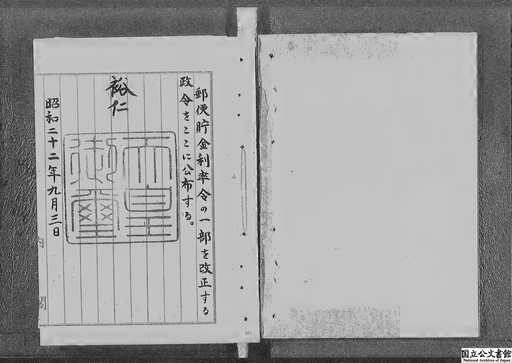 郵便貯金利率令の一部を改正する
政令をここに公布する。
裕仁
天皇
御璽
昭和二十二年九月三日
国立公文書館
National Archives of Japan